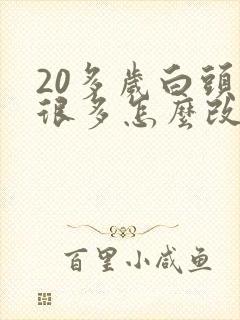 20多歲白頭
很多怎麼改
百里小咸鱼